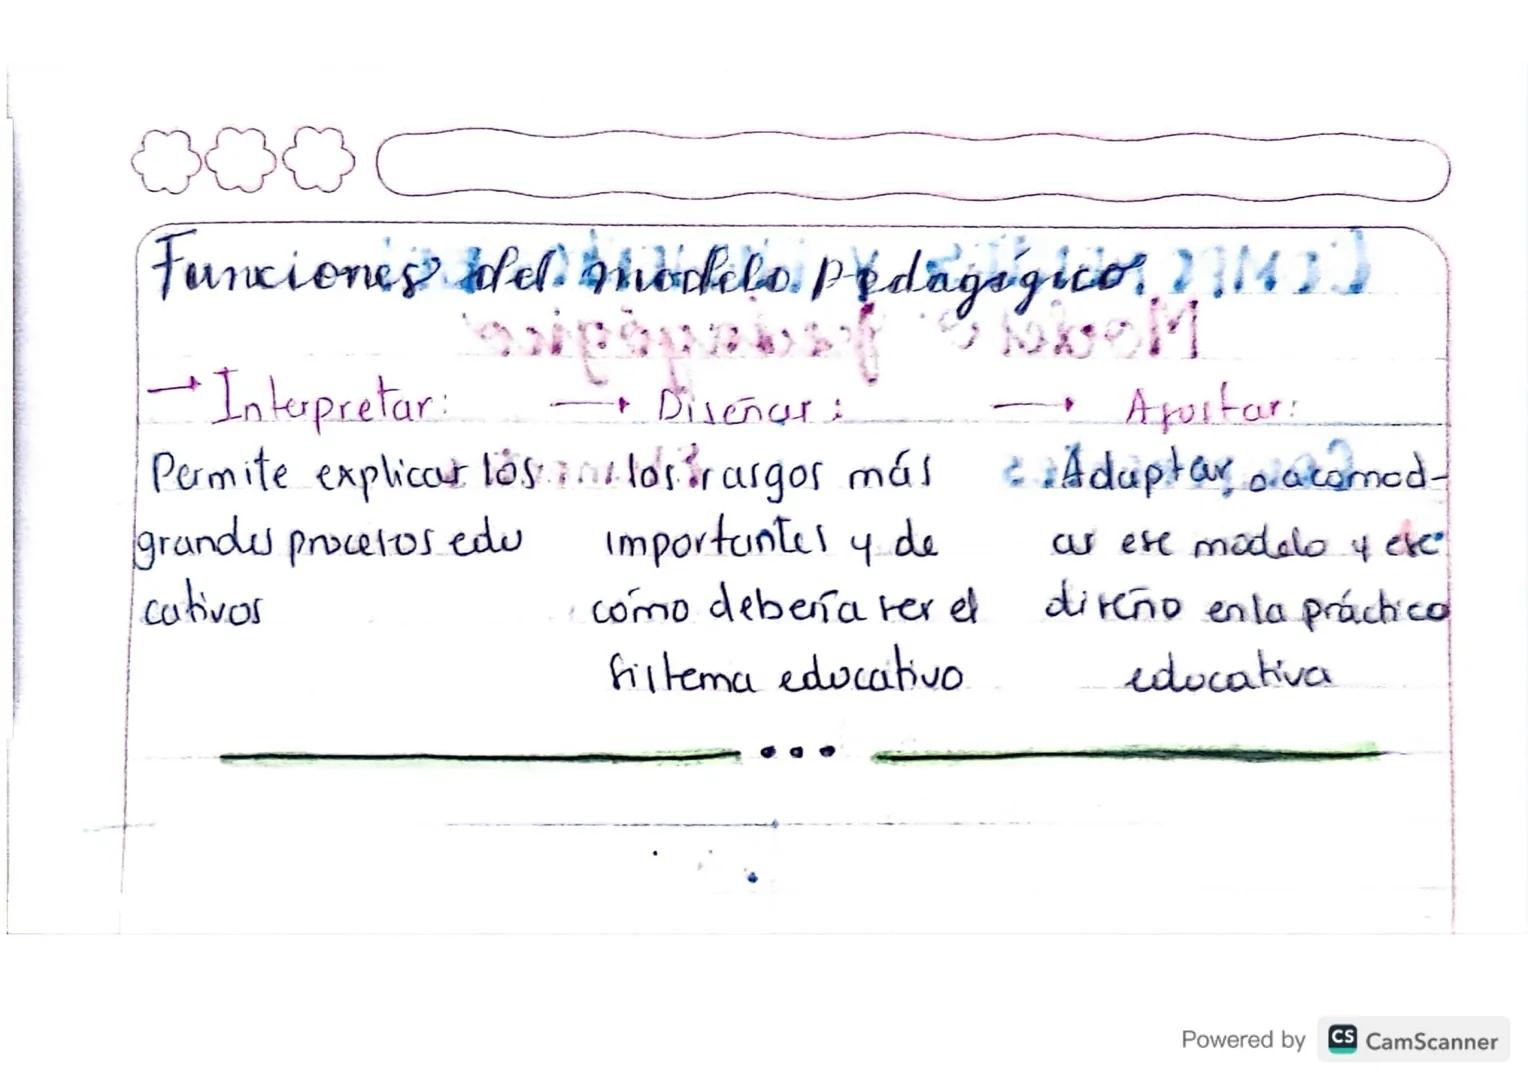 Funciones del modelo pedagógico.
→ Interpretar:
Permite explicar los
grandes procesos edu
cativos
→ Diseñar:
los rasgos más
importantes y de
cómo debería ser el
sistema educativo
→ Ajustar:
Adaptar o acomod-
ar ese modelo y ese
diseño en la práctica
educativa
Powered by CS CamScanner